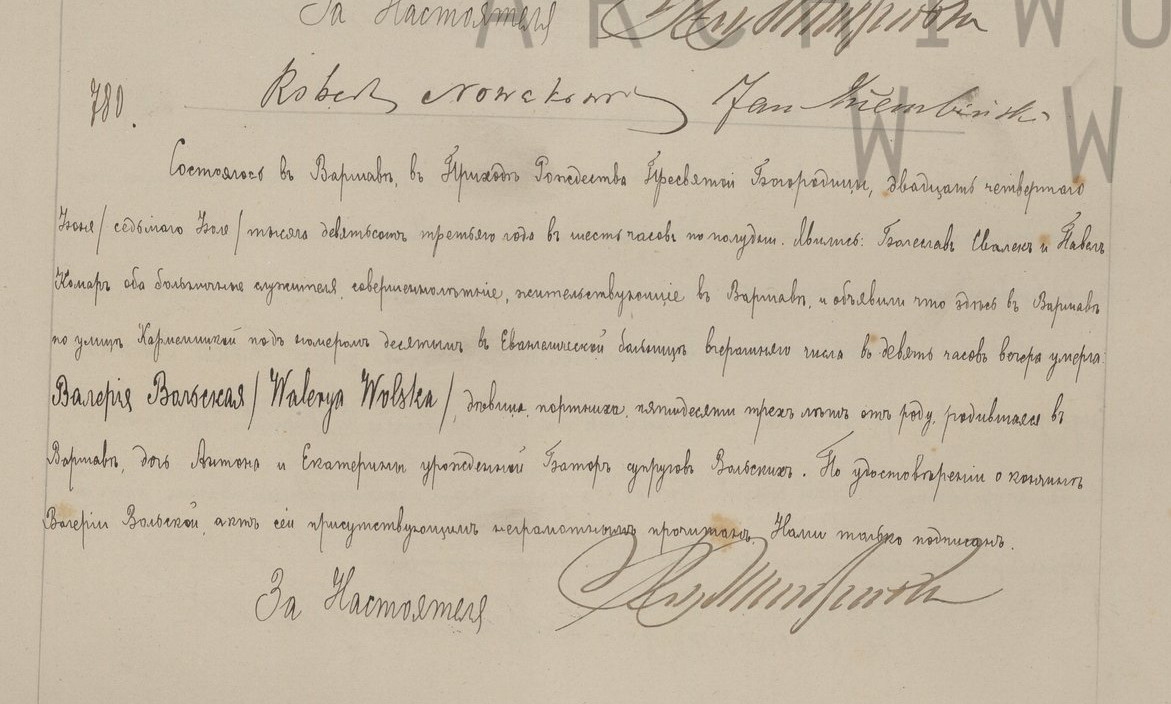 За Настоятеля
ARCHIWU
780.
Robert Nowakowski Jan
W W
Состоялось въ Варшавѣ, въ Приходѣ Рождества Пресвятой Богородицы, двадцать четвертаго
Іюня / седьмаго Іюля / тысяча девятьсотъ третьяго года въ шесть часовъ по полудни. Явились: Болеславъ Свалекъ и Павелъ
Комаръ оба больничные служителя, совершеннолѣтніе, жительствующіе въ Варшавѣ, и объявили что здѣсь въ Варшавѣ
по улицѣ Кармелицкой подъ номеромъ десятымъ въ Евангелической больницѣ вчерашняго числа въ девять часовъ вечера умерла
Валерія Вольская / Walerya Wolska /, дѣвица, портниха, пятидесяти трехъ лѣтъ отъ роду, родившаяся въ
Варшавѣ, дочь Антона и Екатерины урожденной Баторъ супруговъ Вольскихъ. По удостовѣреніи о кончинѣ
Валеріи Вольской, актъ сей присутствующимъ неграмотнымъ прочитанъ, Нами только подписанъ.
За Настоятеля